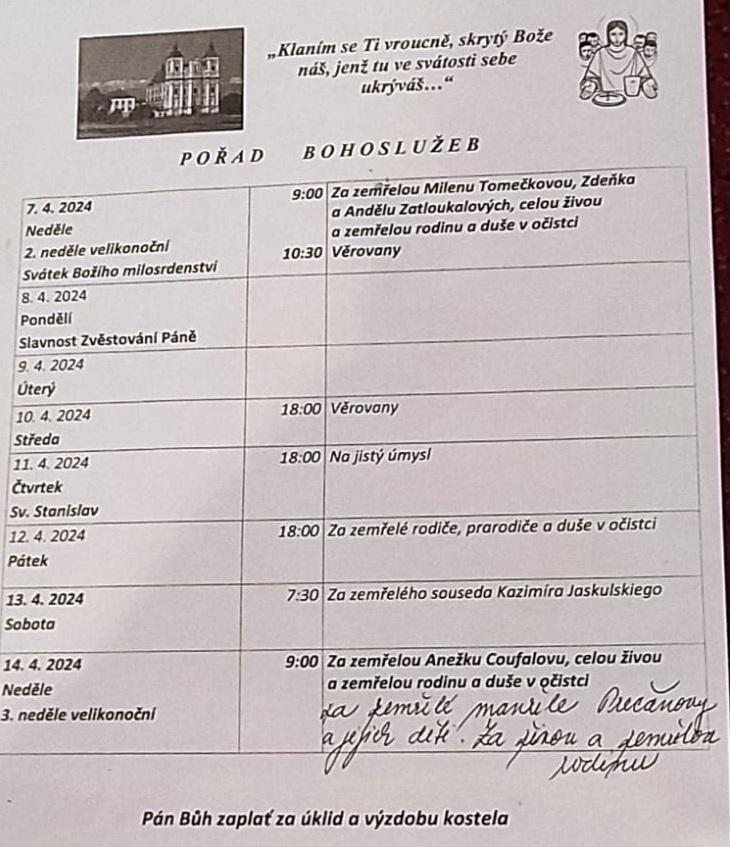 „Klaním se Ti vroucně, skrytý Bože
náš, jenž tu ve svátosti sebe
ukrýváš…“
POŘAD BOHOSLUŽEB
7. 4. 2024
Neděle
2. neděle velikonoční
Svátek Božího milosrdenství
9:00 Za zemřelou Milenu Tomečkovou, Zdeňka
a Andělu Zatloukalových, celou živou
a zemřelou rodinu a duše v očistci
10:30 Věrovany
8. 4. 2024
Pondělí
Slavnost Zvěstování Páně
9. 4. 2024
Úterý
10. 4. 2024
Středa
18:00 Věrovany
11. 4. 2024
Čtvrtek
Sv. Stanislav
18:00 Na jistý úmysl
12. 4. 2024
Pátek
18:00 Za zemřelé rodiče, prarodiče a duše v očistci
13. 4. 2024
Sobota
7:30 Za zemřelého souseda Kazimíra Jaskulskiego
14. 4. 2024
Neděle
3. neděle velikonoční
9:00 Za zemřelou Anežku Coufalovu, celou živou
a zemřelou rodinu a duše v očistci
za zemřelé manžele
a jejich děti. Za živou a zemřelou
rodinu
Pán Bůh zaplať za úklid a výzdobu kostela